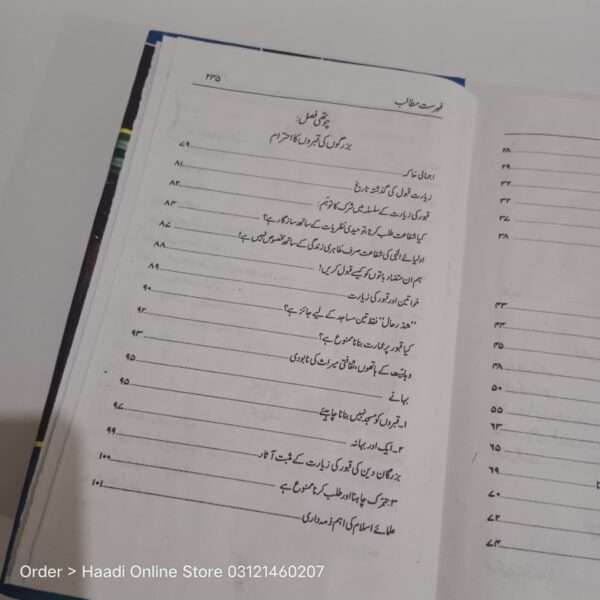 فہرست مطالب ۲۳۵
چوتھی فصل:
بزرگوں کی قبروں کا احترام
اجمالی خاکہ ۷۹
زیارت قبول کی گذشتہ تاریخ ۸۱
قبور کی زیارت کے سلسلہ میں شرک کا توہّم: ۸۲
کیا شفاعت طلب کرنا، توحیدی نظریات کے ساتھ سازگار ہے؟ ۸۳
اولیائے الٰہی کی شفاعت صرف ظاہری زندگی کے ساتھ مخصوص نہیں ہے! ۸۷
ہم ان متضاد باتوں کو کیسے قبول کریں! ۸۸
خواتین اور قبور کی زیارت ۸۹
"شدّ رحال" فقط تین مساجد کے لیے جائز ہے؟ ۹۰
کیا قبور پر عمارت بنانا ممنوع ہے؟ ۹۲
وہابیت کے ہاتھوں، ثقافتی میراث کی نابودی ۹۳
بہانے ۹۵
۱۔ قبروں کو مسجد نہیں بنانا چاہیے ۹۵
۲۔ ایک اور بہانہ ۹۷
بزرگان دین کی قبور کی زیارت کے مثبت آثار ۹۹
۳: تبرک چاہنا اور طلب کرنا ممنوع ہے ۱۰۰
علمائے اسلام کی اہم ذمہ داری ۱۰۱
۲۸
۲۹
۳۲
۳۲
۳۷
۳۸
۴۳
۴۴
۴۵
۴۸
۵۰
۵۵
۶۳
۶۵
۶۹
۷۰
۷۲
۷۴
Order > Haadi Online Store 03121460207